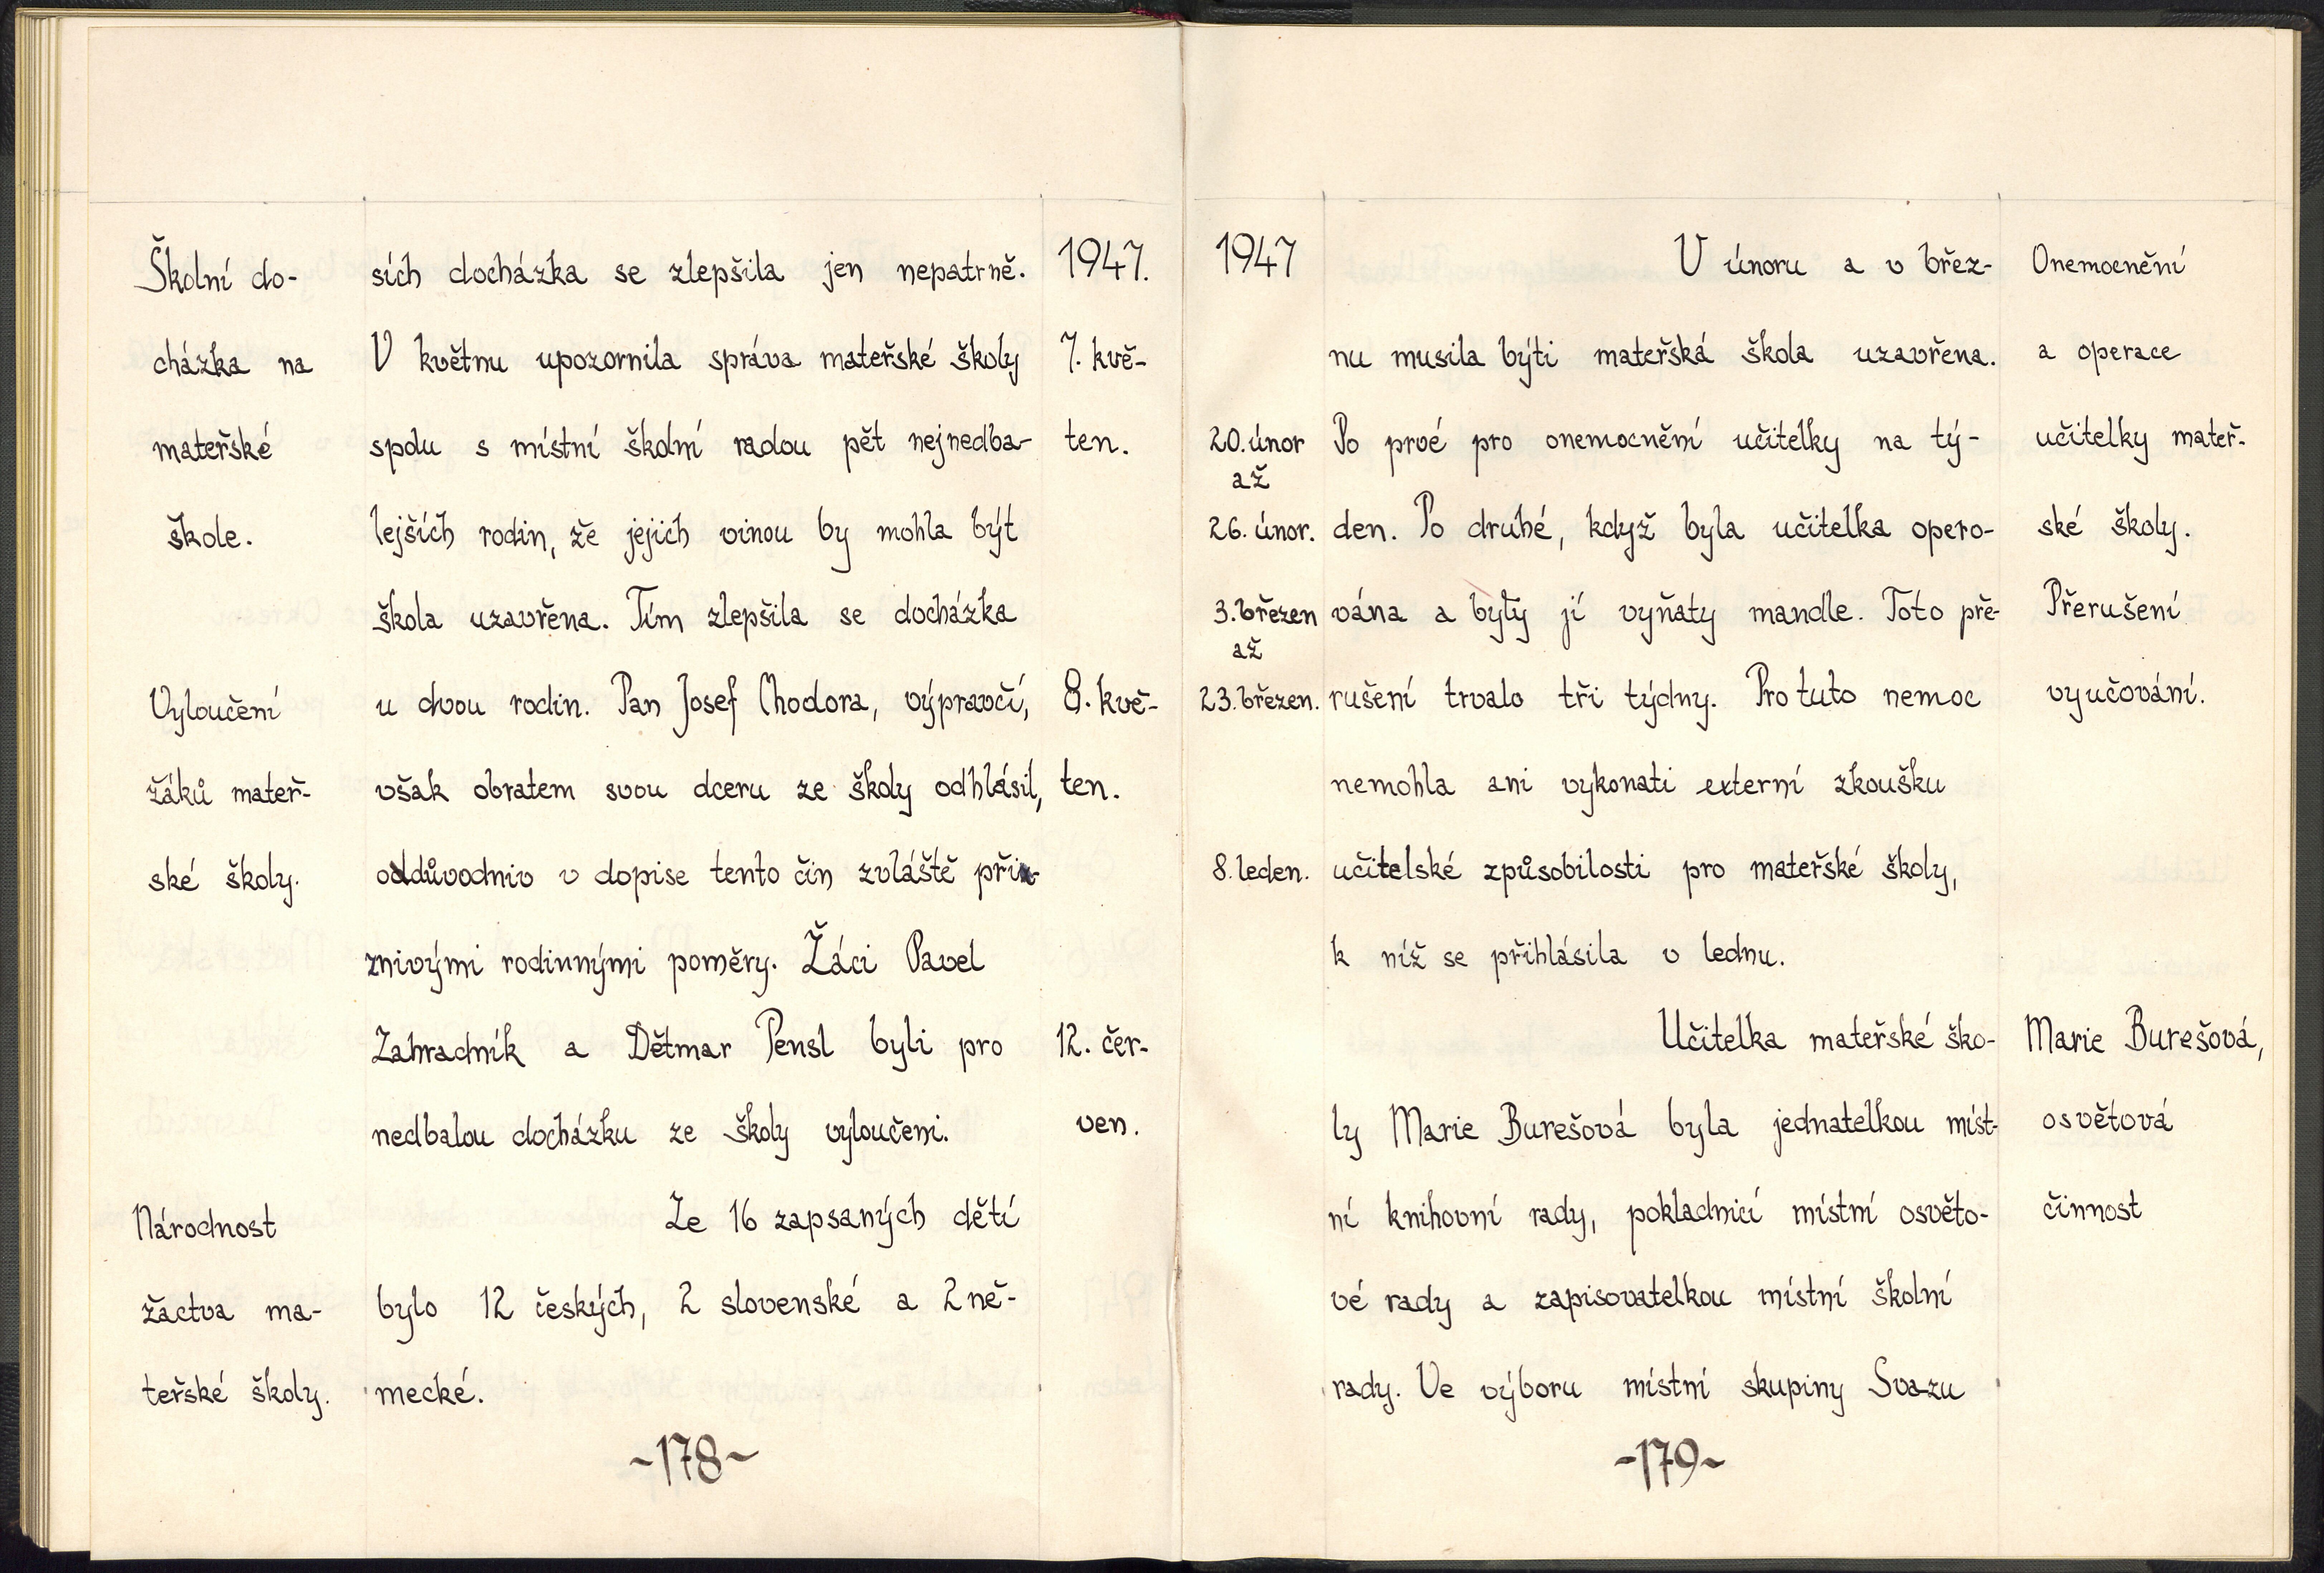 Školní do- sích docházka se zlepšila jen nepatrně. 1947.
cházka na V květnu upozornila správa mateřské školy 7. kvě-
mateřské spolu s místní školní radou pět nejnedba- ten.
škole. lejších rodin, že jejich vinou by mohla být
škola uzavřena. Tím zlepšila se docházka
Vyloučení u dvou rodin. Pan Josef Chodora, výpravčí, 8. kvě-
žáků mateř- však obratem svou dceru ze školy odhlásil, ten.
ské školy. oddůvodniv v dopise tento čin zvláště při-
znivými rodinnými poměry. Žáci Pavel
Zahradník a Dětmar Pensl byli pro 12. čer-
nedbalou docházku ze školy vyloučeni. ven.
Národnost Ze 16 zapsaných dětí
žactva ma- bylo 12 českých, 2 slovenské a 2 ně-
teřské školy. mecké.
~178~
1947 V únoru a v břez- Onemocnění
nu musila býti mateřská škola uzavřena. a operace
20. únor Po prvé pro onemocnění učitelky na tý- učitelky mateř-
až
26. únor. den. Po druhé, když byla učitelka opero- ské školy.
3. březen vána a byly jí vyňaty mandle. Toto pře- Přerušení
až
23. březen. rušení trvalo tři týdny. Pro tuto nemoc vyučování.
nemohla ani vykonati externí zkoušku
8. leden. učitelské způsobilosti pro mateřské školy,
k níž se přihlásila v lednu.
Učitelka mateřské ško- Marie Burešová,
ly Marie Burešová byla jednatelkou míst- osvětová
ní knihovní rady, pokladnicí místní osvěto- činnost
vé rady a zapisovatelkou místní školní
rady. Ve výboru místní skupiny Svazu
-179~